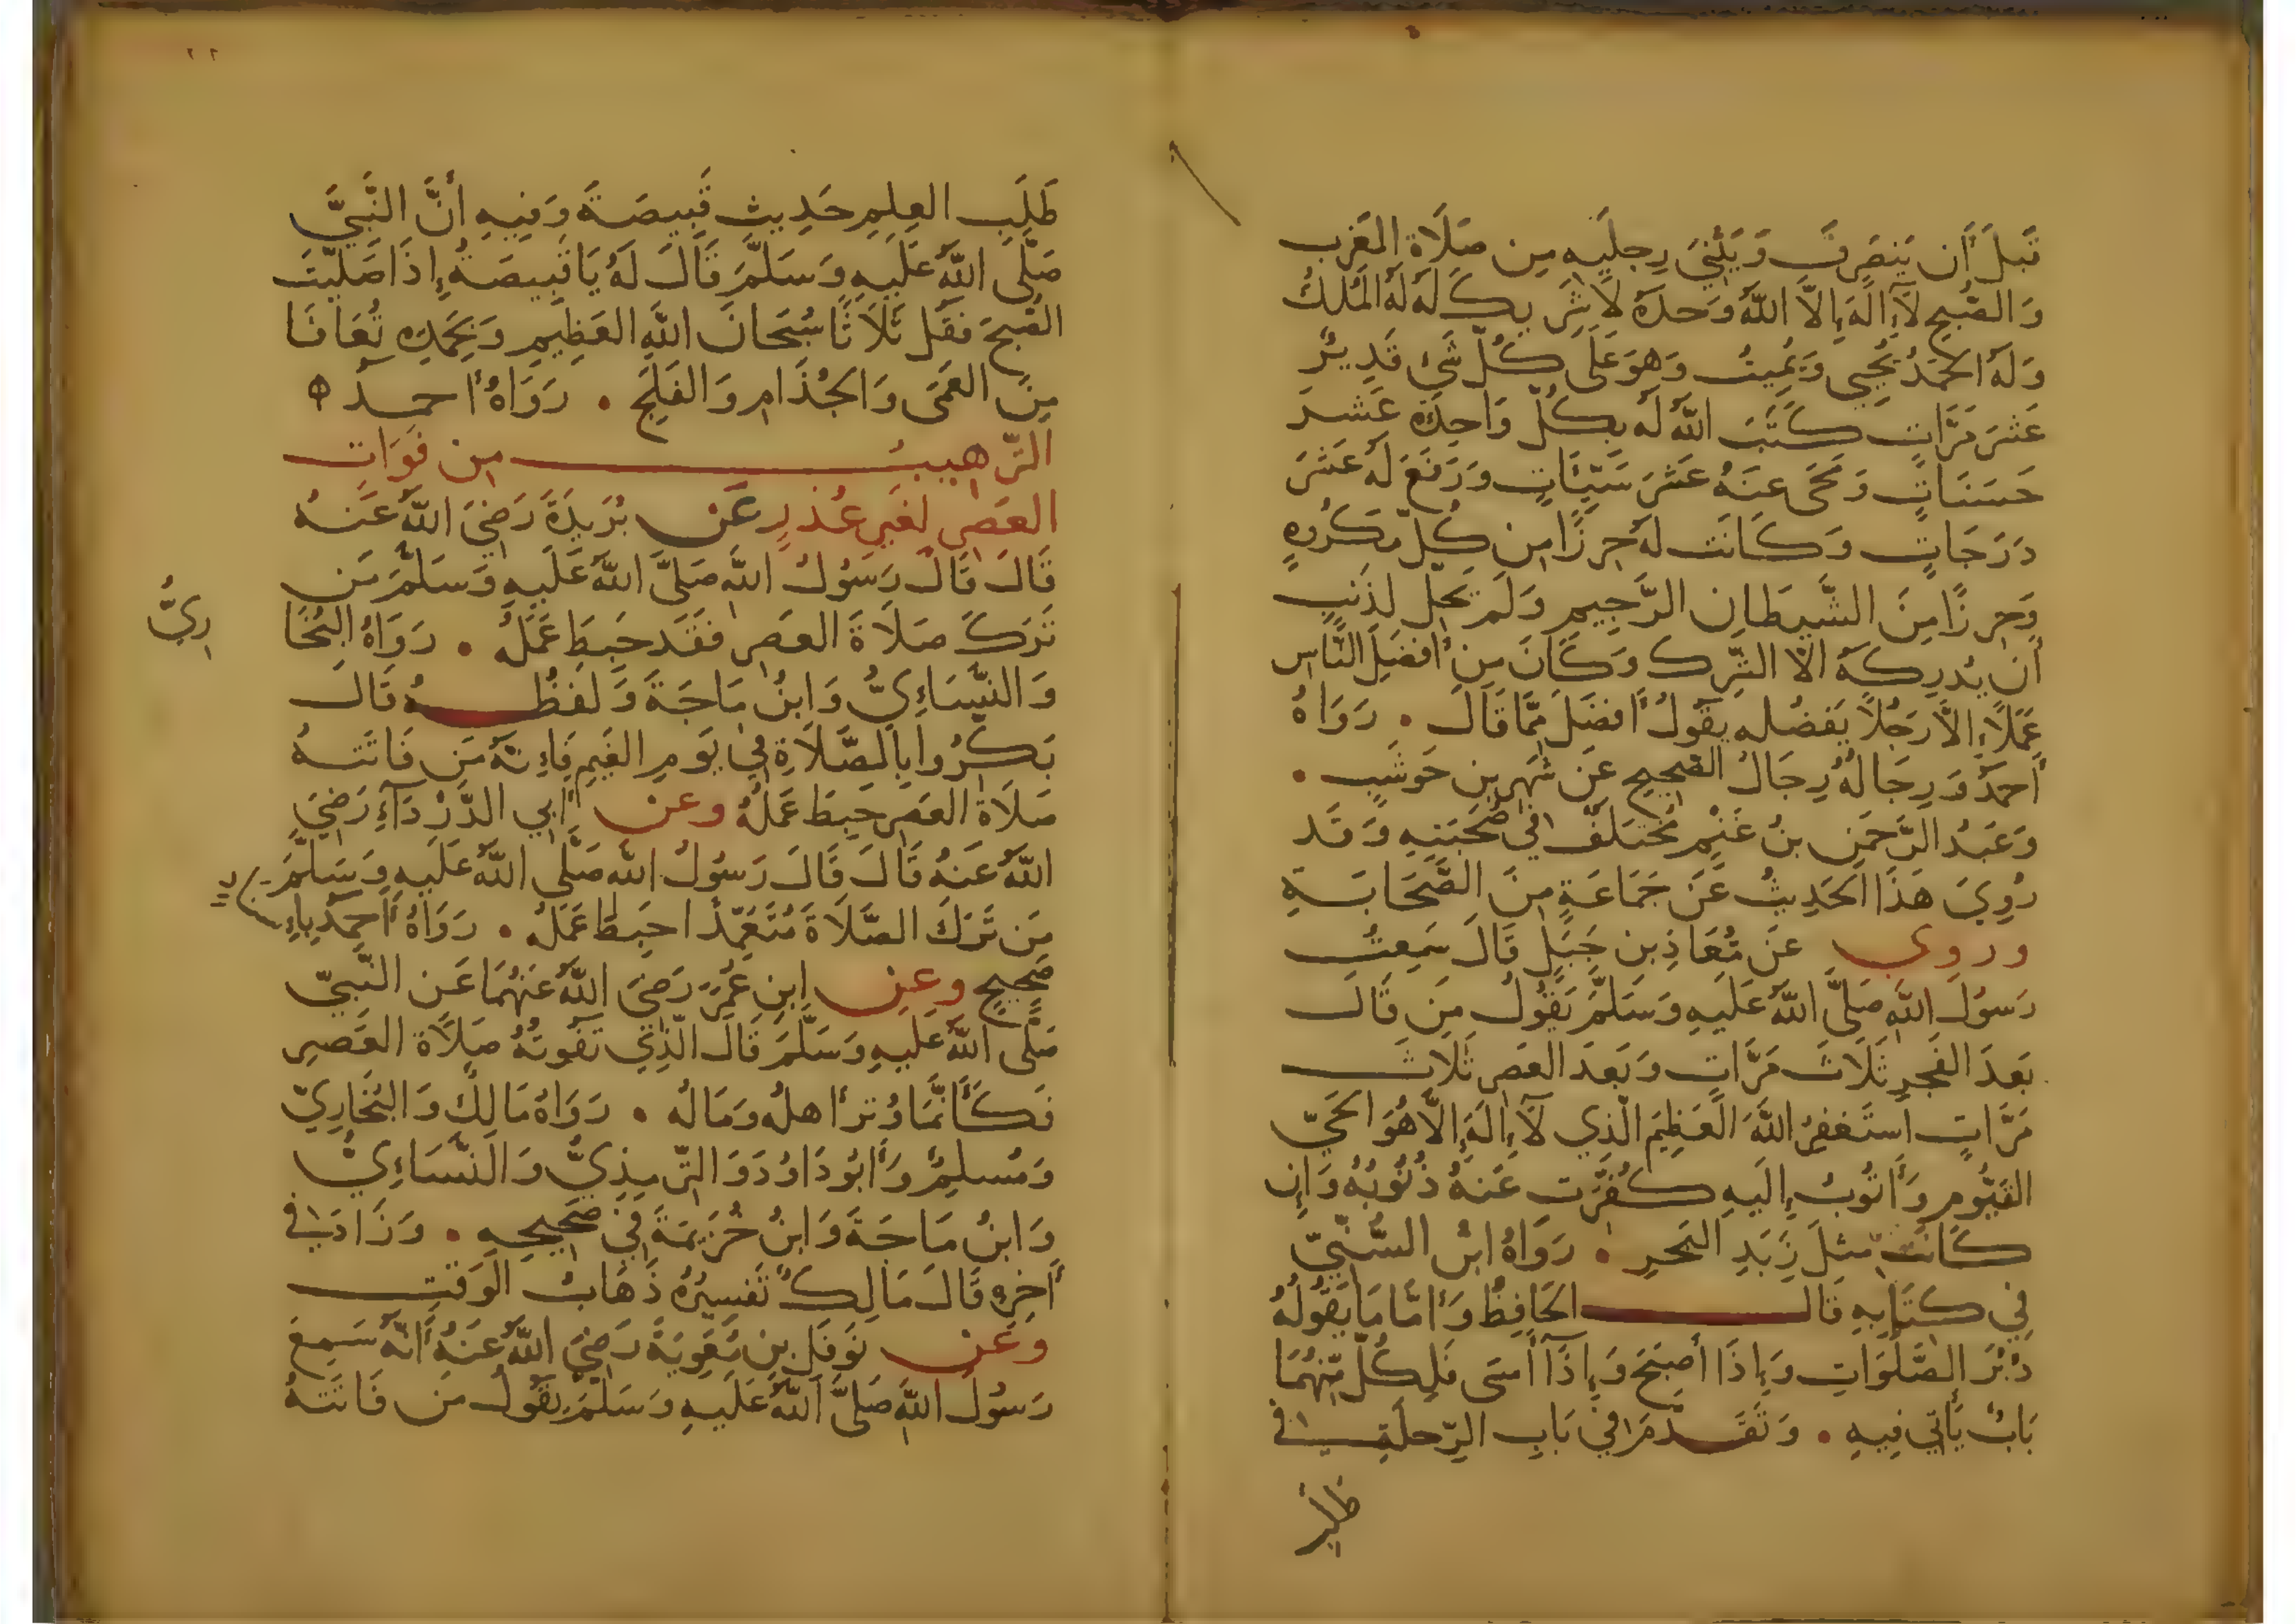 قَبلَ أَن يَنصَرِفَ وَيَثْنِيَ رِجلَيهِ مِن صَلَاةِ المَغرِب
وَالصُّبحِ لَآ إِلَهَ إِلَّا اللَّهُ وَحدَهُ لَا شَرِيكَ لَهُ لَهُ المُلكُ
وَلَهُ الحَمدُ يُحيِي وَيُمِيتُ وَهوَ عَلَى كُلِّ شَيْءٍ قَدِيرٌ
عَشرَ مَرَّاتٍ كَتَبَ اللَّهُ لَه بِكُلِّ وَاحِدَةٍ عَشرَ
حَسَنَاتٍ وَمَحَى عَنهُ عَشرَ سَيِّئَاتٍ وَرَفَعَ لَهُ عَشرَ
دَرَجَاتٍ وَكَانَت لَهُ حِرزًا مِن كُلِّ مَكرُوهٍ
وَحِرزًا مِنَ الشَّيطَانِ الرَّجِيمِ وَلَم يَحِلَّ لِذَنبٍ
أَن يُدرِكَهُ الَّا الشِّركَ وَكَانَ مِن أَفضَلِ النَّاسِ
عَمَلًا إِلَّا رَجُلًا يَفضُلُه يَقُولُ أَفضَلَ مِمَّا قَالَ . رَوَاهُ
أَحمَدُ وَرِجَالُهُ رِجَالُ الصَّحِيحِ عَن شَهرِ بنِ حَوشَبٍ .
وَعَبدُ الرَّحمَنِ بنُ غَنْمٍ مُختَلَفٌ فِي صُحبَتِهِ وَقَد
رُوِيَ هَذَا الحَدِيثُ عَن جَمَاعَةٍ مِنَ الصَّحَابَةِ
وروي عَن مُعَاذِ بن جَبَلٍ قَالَ سَمِعتُ
رَسُولَ اللَّهِ صَلَّى اللَّهُ عَلَيهِ وَسَلَّمَ يَقُولُ مَن قَالَ
بَعدَ الفَجرِ ثَلَاثَ مَرَّاتٍ وَبَعدَ العَصرِ ثَلَاثَ
مَرَّاتٍ استَغفِرُ اللَّهَ العَظِيمَ الَّذِي لَآ إِلَهَ إِلَّا هُوَ الحَيّ
القَيُّوم وَأَتُوبُ إِلَيهِ كُفِّرَت عَنهُ ذُنُوبُهُ وَإِن
كَانَت مِثلَ زَبَدِ البَحرِ . رَوَاهُ ابنُ السُّنِّيّ
فِي كِتَابِهِ قَالَ الحَافِظُ وَأَمَّا مَا يَقُولُهُ
دُبُرَ الصَّلَوَاتِ وَإِذَا أَصبَحَ وَإِذَآ أَمسَى فَلِكُلٍّ مِّنهُمَا
بَابٌ يَأتِي فِيهِ . وَتَقَدَّمَ فِي بَابِ الرِّحلَةِ في
طلب
طَلَبِ العِلمِ حَدِيثِ قَبِيصَةَ وَفِيهِ أَنَّ النَّبِيَّ
صَلَّى اللَّهُ عَلَيهِ وَسَلَّمَ قَالَ لَهُ يَا قَبِيصَةُ إِذَا صَلَّيتَ
الصُّبحَ فَقُل ثَلَاثًا سُبحَانَ اللَّهِ العَظِيمِ وَبِحَمدِهِ تُعَافَا
مِنَ العَمَى وَالجُذَامِ وَالفَلِجِ . رَوَاهُ أحمد ه
التَّرهِيبُ مِن فَوَاتِ
العَصرِ لغَيرِ عُذرٍ عَن بُرَيدَةَ رَضِيَ اللَّهُ عَنهُ
قَالَ قَالَ رَسُولُ اللَّهِ صَلَّى اللَّهُ عَلَيهِ وَسَلَّمَ مَن
تَرَكَ صَلَاةَ العَصرِ فَقَد حَبِطَ عَمَلُهُ . رَوَاهُ البُخَا
رِيُّ
وَالنَّسَائِيُّ وَابنُ مَاجَةَ وَلَفظُهُ قَالَ
بَكِّرُوا بِالصَّلَاةِ فِي يَومِ الغَيمِ فَإِنَّهُ مَن فَاتَتهُ
صَلَاةُ العَصرِ حَبِطَ عَمَلُهُ وعن أَبِي الدَّرْدَآءِ رَضِيَ
اللَّهُ عَنهُ قَالَ قَالَ رَسُولُ اللَّهِ صَلَّى اللَّهُ عَلَيهِ وَسَلَّمَ
مَن تَرَكَ الصَّلَاةَ مُتَعَمِّدًا حَبِطَ عَمَلُهُ . رَوَاهُ أَحمَدُ بِإِ
سناد
صَحِيحٍ وعن ابنِ عُمَرَ رَضِيَ اللَّهُ عَنهُمَا عَن النَّبِيّ
صَلَّى اللَّهُ عَلَيهِ وَسَلَّمَ قَالَ الَّذِي تَفُوتُهُ صَلَاةُ العَصرِ
فَكَأَنَّمَا وُتِرَ أَهلُه وَمَالُه . رَوَاهُ مَالِكٌ وَالبُخَارِيّ
وَمُسلِمٌ وَأَبُو دَاوُدَ وَالتِّرمِذِيُّ وَالنَّسَائِيُّ
وَابنُ مَاجَةَ وَابنُ خُزَيمَةَ فِي صَحِيحِهِ . وَزَادَ في
آخِرِهِ قَالَ مَالِكٌ تَفسِيرُهُ ذَهَابُ الوَقتِ
وَعَن نَوفَلِ بنِ مُعَوِيَةَ رَضِيَ اللَّهُ عَنهُ أَنَّهُ سَمِعَ
رَسُولَ اللَّهِ صَلَّى اللَّهُ عَلَيهِ وَسَلَّمَ يَقُولُ مَن فَاتَتهُ